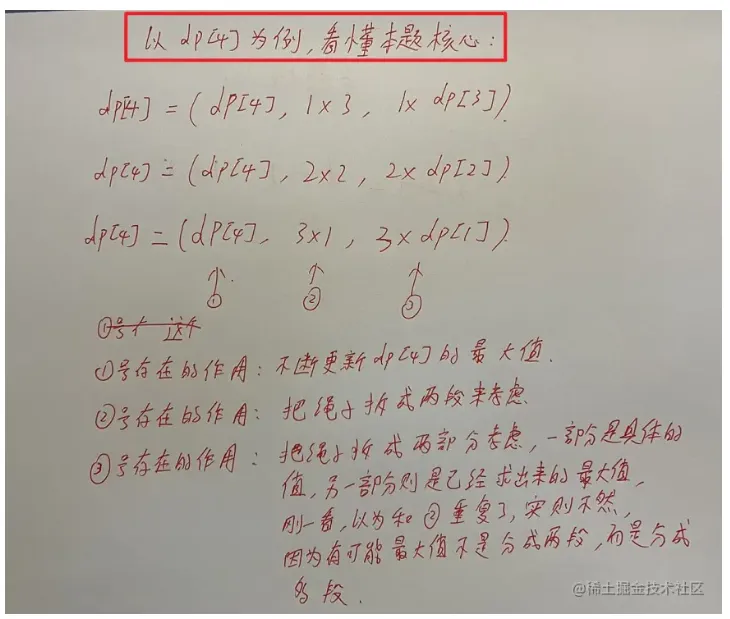 以dp[4]为例,看懂本题核心:
dp[4]=(dP[4], 1×3, 1×dp[3])
dp[4]=(dP[4], 2×2, 2×dp[2])
dp[4]=(dP[4], 3×1, 3×dp[1])
① ② ③
①号存在的作用:不断更新dp[4]的最大值.
②号存在的作用:把绳子拆成两段来考虑
③号存在的作用:把绳子拆成两部分考虑,一部分是具体的
值,另一部分则是已经求出来的最大值,
刚一看,以为和②重复了,实则不然,
因为有可能最大值不是分成两段,而是分成
多段.
@稀土掘金技术社区